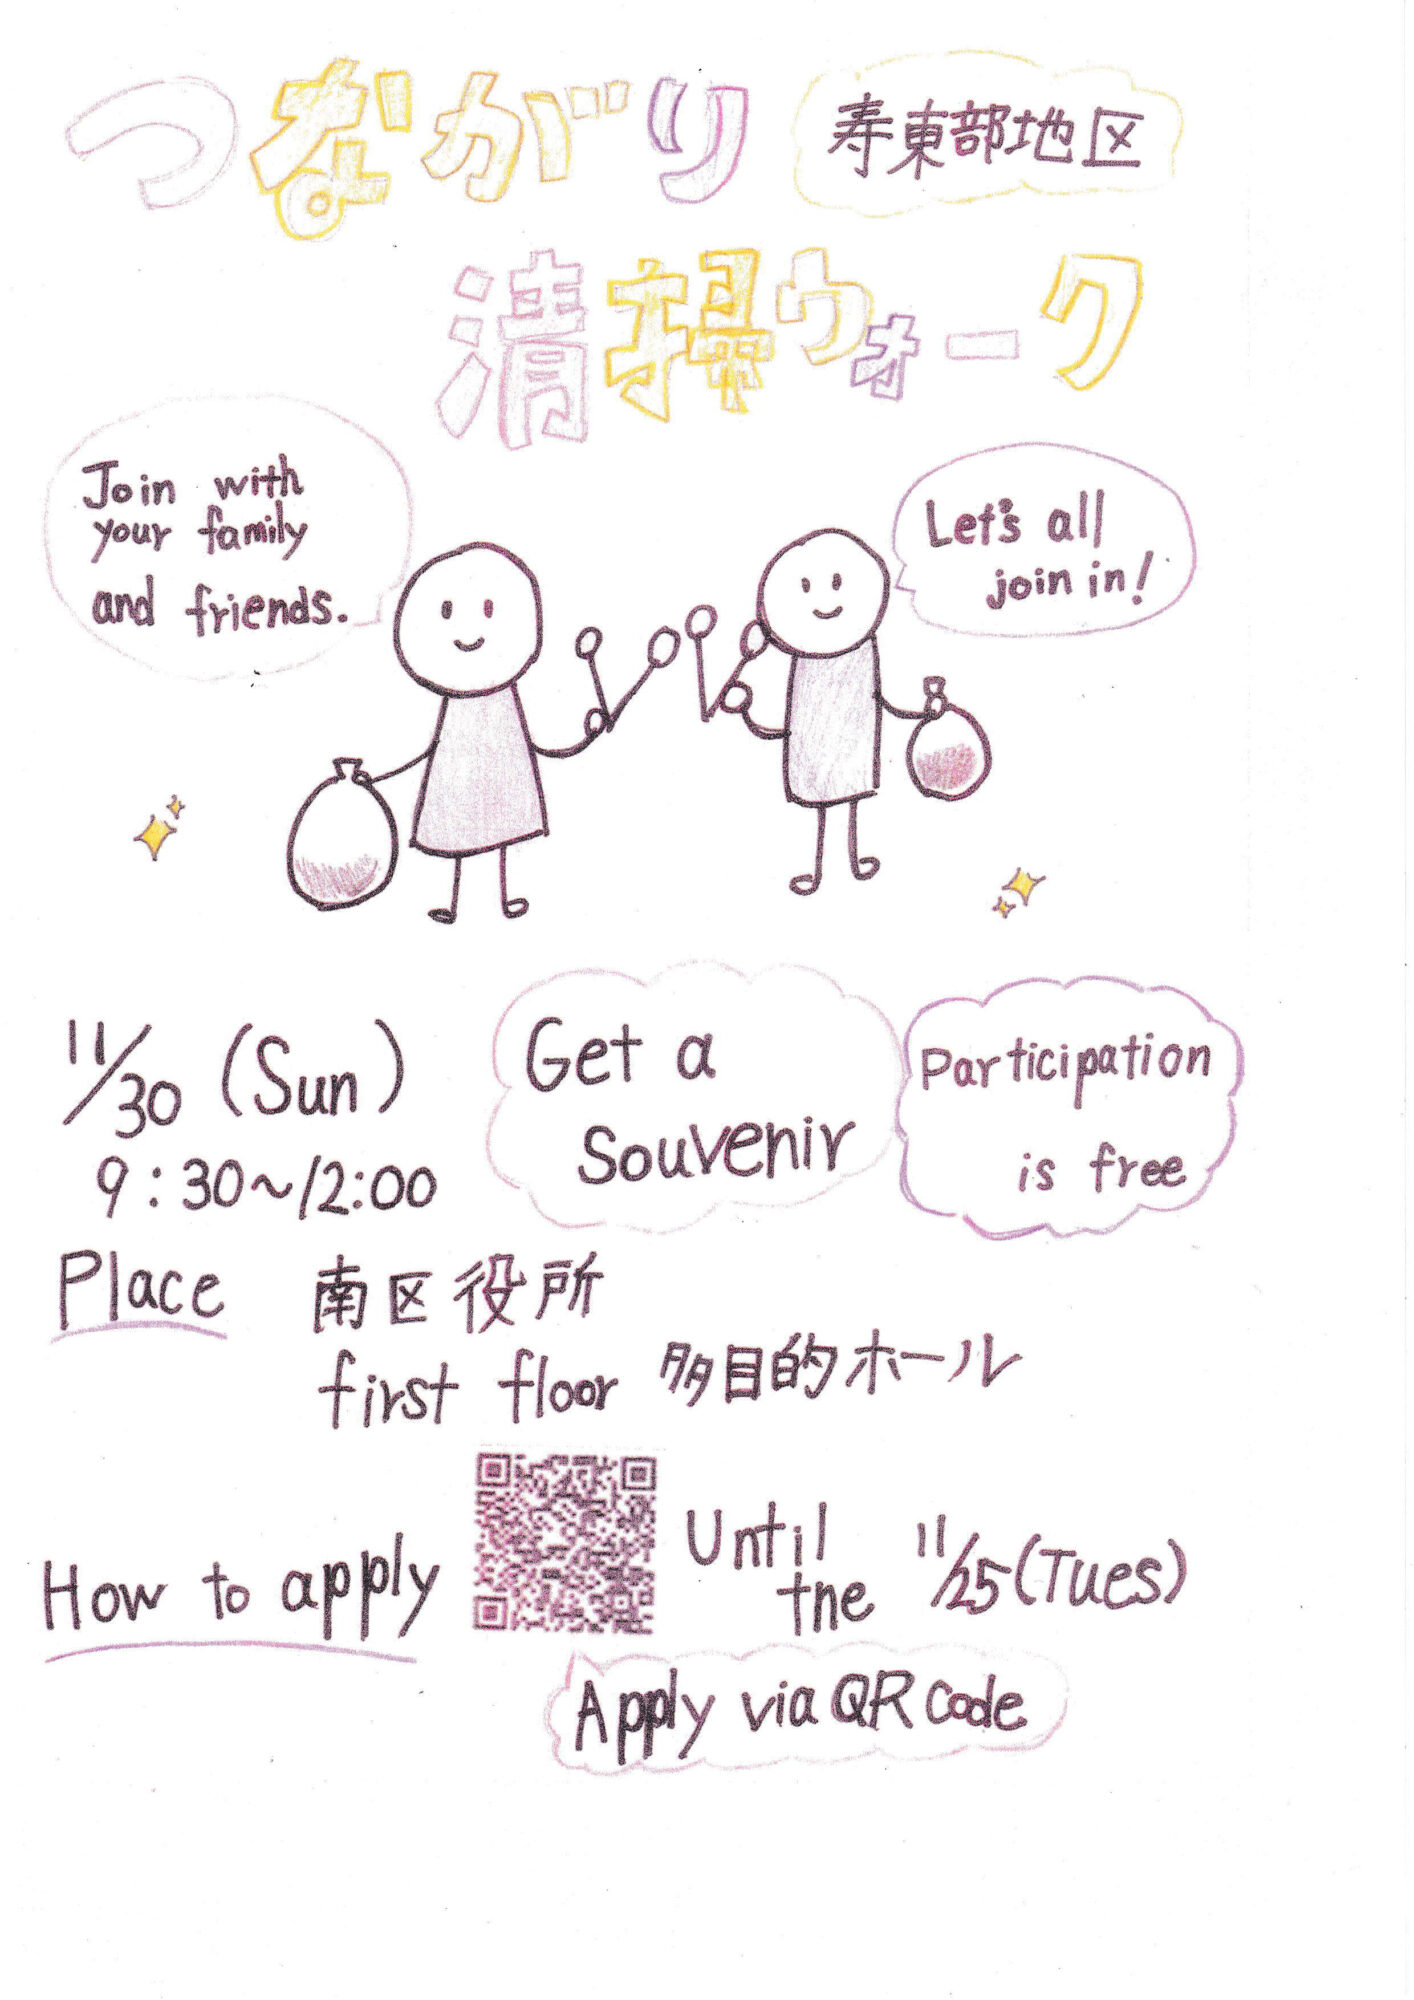 つながり
寿東部地区
清掃ウォーク
Join with
your family
and friends.
Let's all
join in!
11/30 (Sun)
9:30~12:00
Get a
Souvenir
Participation
is free
Place
南区役所
first floor 多目的ホール
How to apply
Until
the
11/25 (Tues)
Apply via QR code